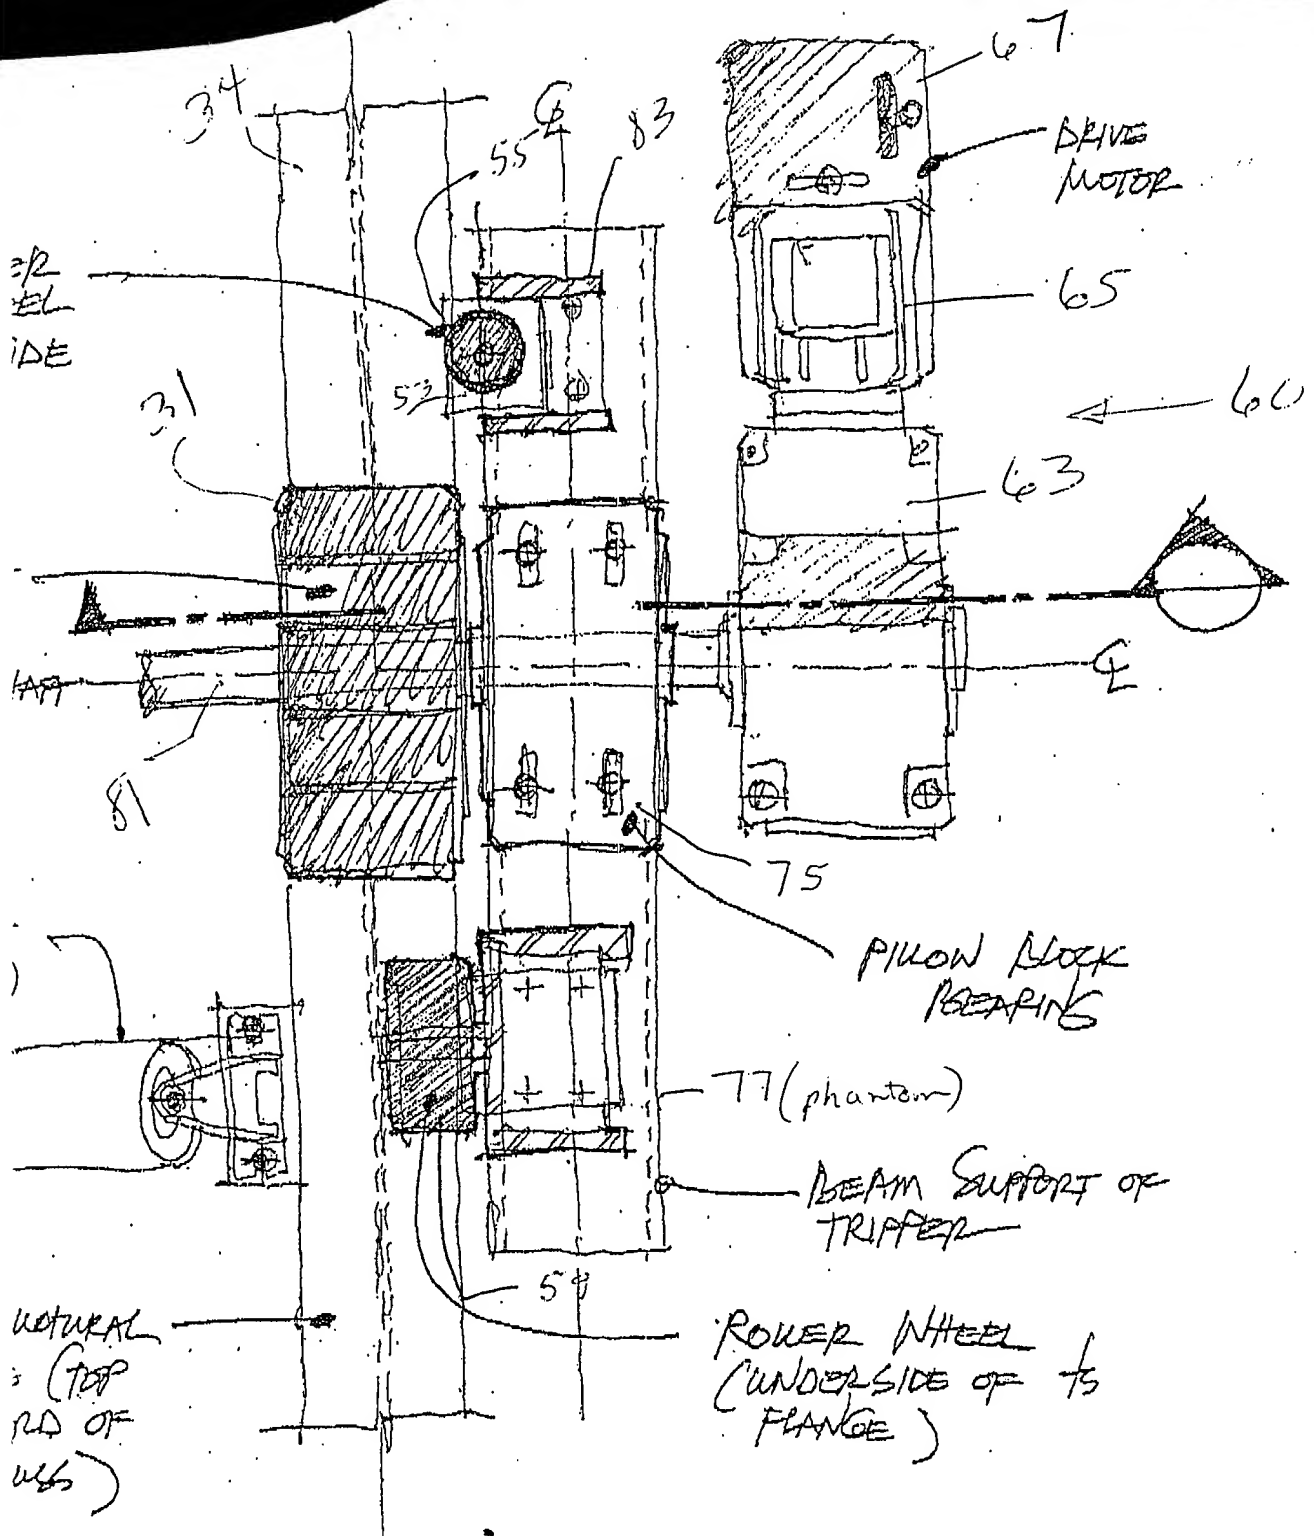 67
34
℄
83
55
DRIVE
MOTOR
65
IDE
53
31
60
63
℄
81
75
PILLOW BLOCK
BEARING
77 (phantom)
BEAM SUPPORT OF
TRIPPER
59
ROLLER WHEEL
(UNDERSIDE OF
FLANGE)
(TOP
RD OF